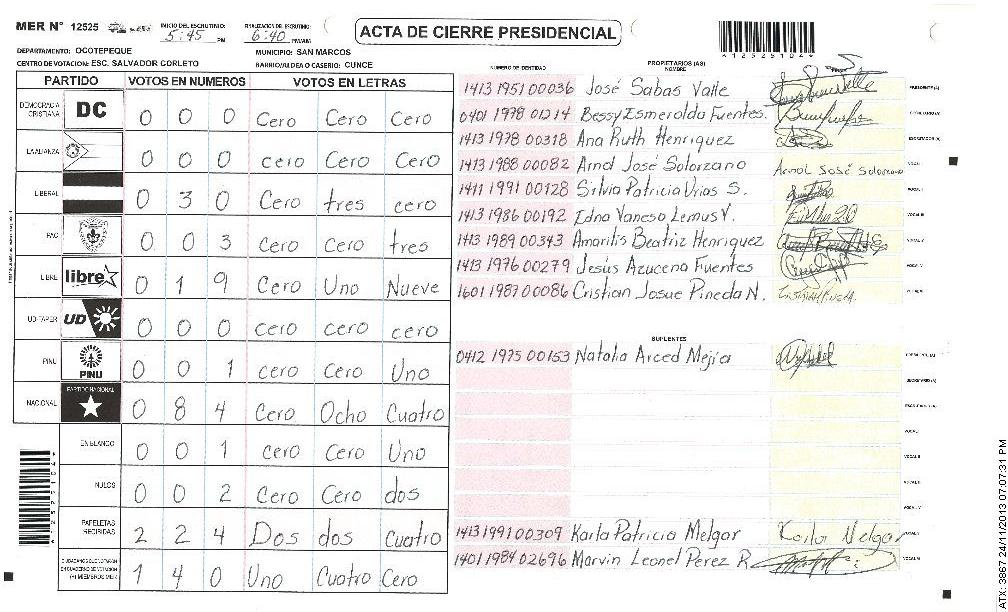 MER N° 12525
INICIO DEL ESCRUTINIO: 5:45 PM
FINALIZACION DEL ESCRUTINIO: 6:40 PM/AM
ACTA DE CIERRE PRESIDENCIAL
*12525104*
DEPARTAMENTO: OCOTEPEQUE
MUNICIPIO: SAN MARCOS
CENTRO DE VOTACION: ESC. SALVADOR CORLETO
BARRIO/ALDEA O CASERIO: CUNCE
PARTIDO VOTOS EN NUMEROS VOTOS EN LETRAS
DEMOCRACIA CRISTIANA DC 0 0 0 Cero Cero Cero
LA ALIANZA 0 0 0 cero Cero Cero
LIBERAL 0 3 0 Cero tres cero
PAC 0 0 3 Cero Cero tres
LIBRE libre 0 1 9 Cero Uno Nueve
UD-FAPER UD 0 0 0 cero cero cero
PINU PINU 0 0 1 cero Cero Uno
NACIONAL PARTIDO NACIONAL 0 8 4 Cero Ocho Cuatro
EN BLANCO 0 0 1 cero Cero Uno
NULOS 0 0 2 Cero Cero dos
PAPELETAS RECIBIDAS 2 2 4 Dos dos Cuatro
1 4 0 Uno Cuatro Cero
NUMERO DE IDENTIDAD PROPIETARIOS (AS) NOMBRE
1413 1951 00036 José Sabas Valle PRESIDENTE (A)
0401 1978 01214 Bessy Esmeralda Fuentes. SECRETARIO (A)
1413 1978 00318 Ana Ruth Henriquez ESCRUTADOR (A)
1413 1988 00082 Arnol José Solorzano Arnol José Solorzano VOCAL I
1411 1991 00128 Silvia Patricia Urias S.
1413 1986 00192 Edna Vanesa Lemus V.
1413 1989 00343 Amarilis Beatriz Henriquez
1413 1976 00279 Jesús Azucena Fuentes
1601 1987 00086 Cristian Josue Pineda N.
SUPLENTES
0412 1975 00153 Natalia Arced Mejia
SECRETARIO (A)
1413 1991 00309 Karla Patricia Melgar Karla Melgar
1401 1984 02696 Marvin Leonel Perez R
ATX: 3867 24/11/2013 07:07:31 PM